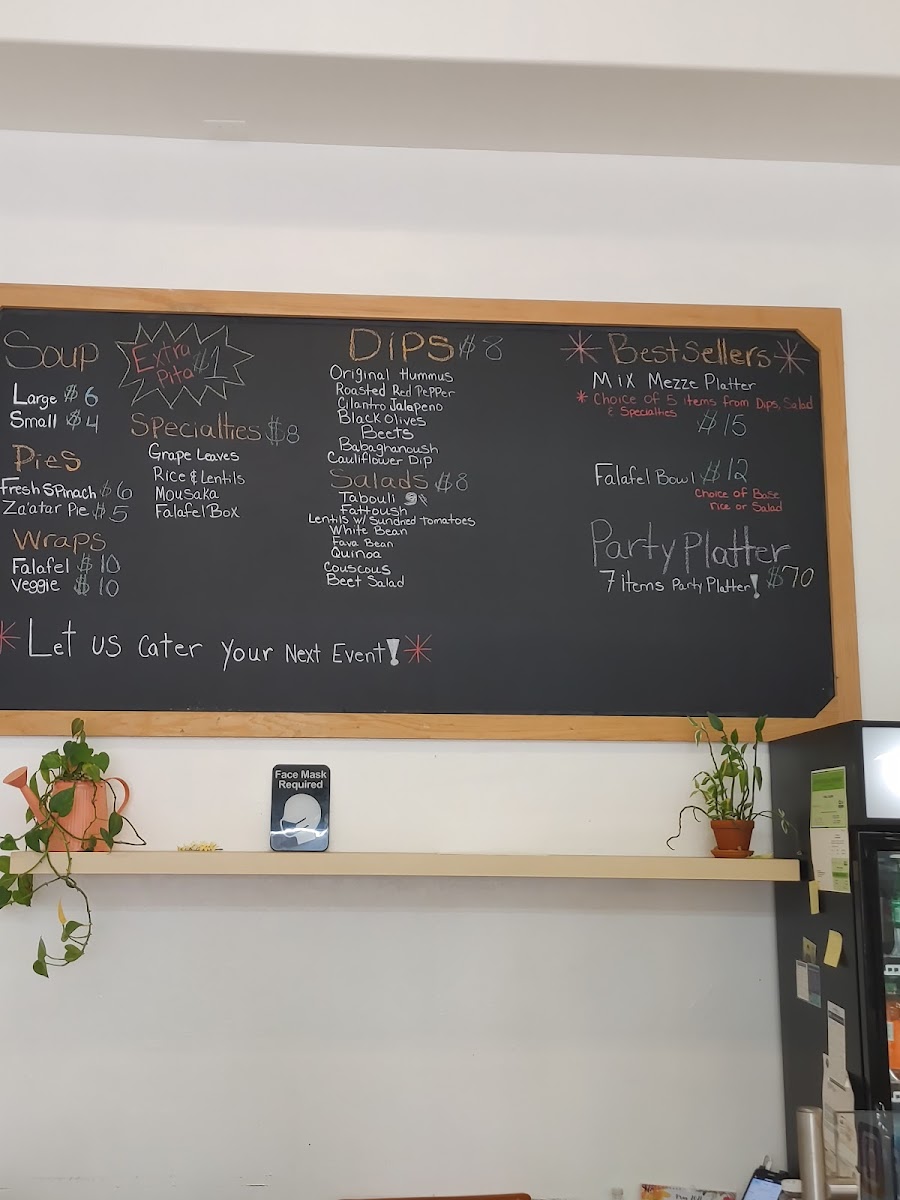 Soup
Large $6
Small $4
Pies
Fresh Spinach $6
Za'atar Pie $5
Wraps
Falafel $10
Veggie $10
Extra
Pita $1
Specialties $8
Grape Leaves
Rice & Lentils
Mousaka
Falafel Box
Dips $8
Original Hummus
Roasted Red Pepper
Cilantro Jalapeno
Black Olives
Beets
Babaghanoush
Cauliflower Dip
Salads $8
Tabouli
Fattoush
Lentils w/ Sundried Tomatoes
White Bean
Fava Bean
Quinoa
Couscous
Beet Salad
* Best Sellers *
Mix Mezze Platter
* Choice of 5 items from Dips, Salad
& Specialties
$15
Falafel Bowl $12
Choice of Base
rice or Salad
Party Platter
7 items Party Platter! $70
* Let us Cater Your Next Event! *
Face Mask
Required